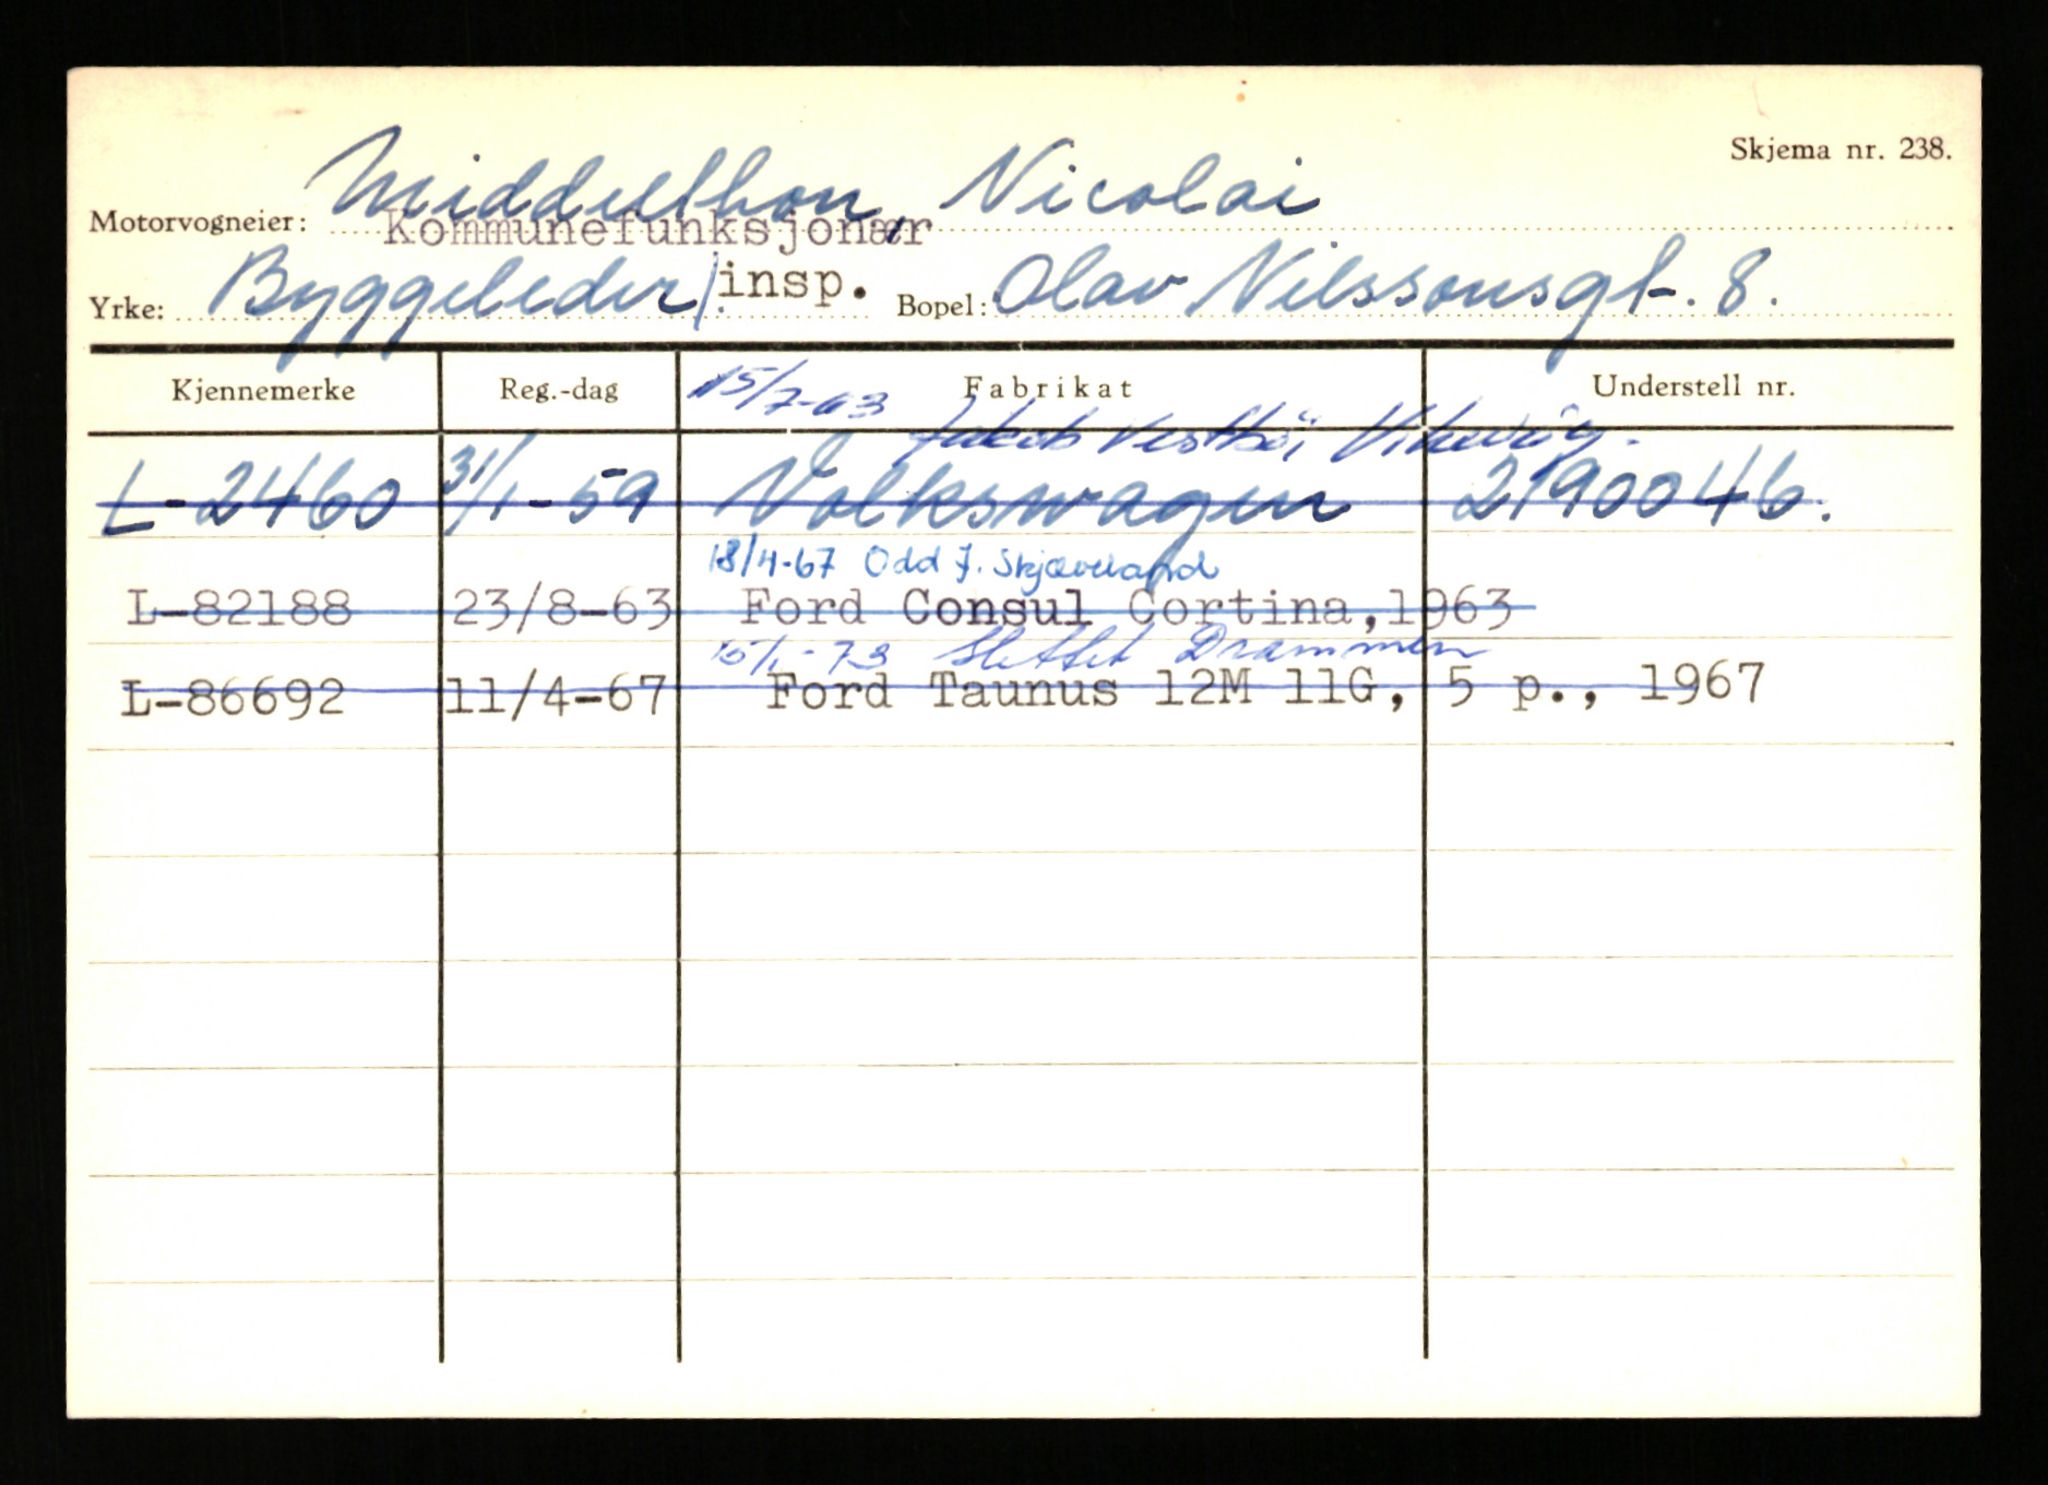 Skjema nr. 238.
Motorvogneier: Middelthon, Nicolai
Kommunefunksjonær
Yrke: Byggeleder/insp. Bopel: Olav Nilssonsgt. 8.
Kjennemerke Reg.-dag Fabrikat Understell nr.
15/7-63 Jakob Vestbøi
L-2460 31/1-59 Volkswagen 2190046.
18/4-67 Odd J. Skjæveland
L-82188 23/8-63 Ford Consul Cortina, 1963
15/1-73 Slettet Drammen
L-86692 11/4-67 Ford Taunus 12M 11G, 5 p., 1967